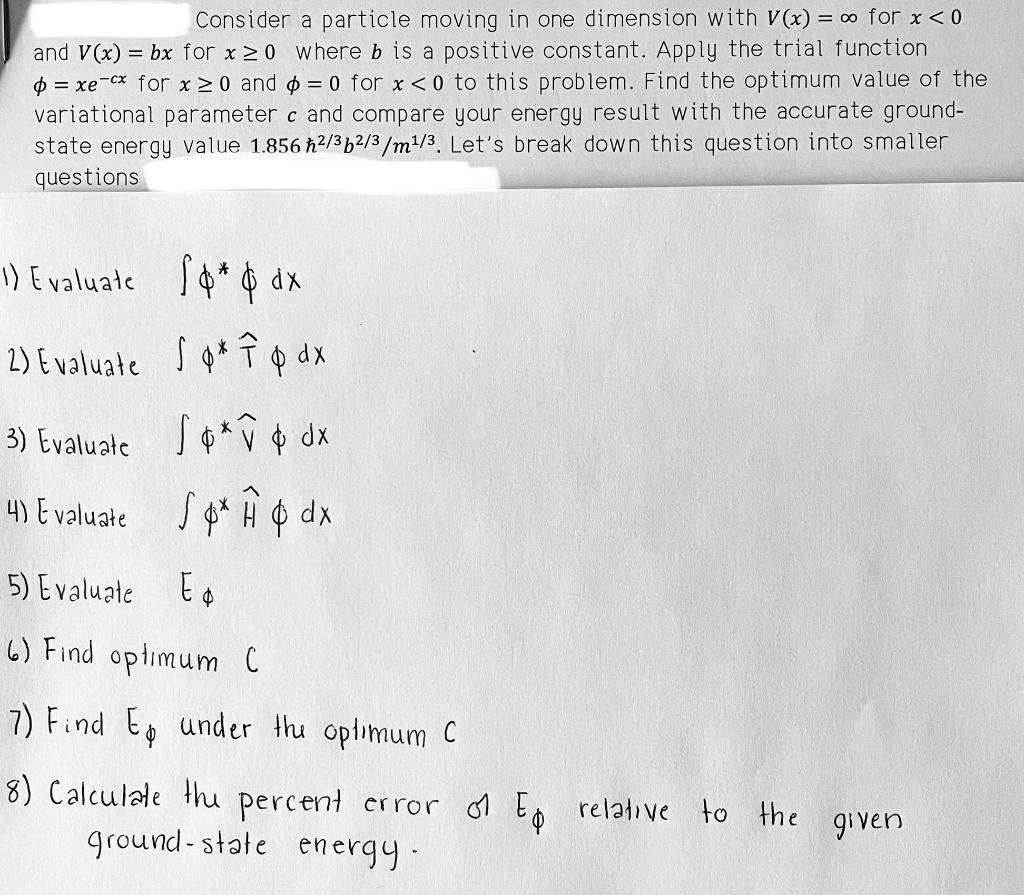 Consider a particle moving in one dimension with V(x) = ∞ for x < 0
and V(x) = bx for x ≥ 0 where b is a positive constant. Apply the trial function
ϕ = xe⁻ᶜˣ for x ≥ 0 and ϕ = 0 for x < 0 to this problem. Find the optimum value of the
variational parameter c and compare your energy result with the accurate ground-
state energy value 1.856 ℏ^2/3b^2/3/m^1/3. Let's break down this question into smaller
questions
1) Evaluate ∫ϕ* ϕ dx
2) Evaluate ∫ ϕ* T̂ ϕ dx
3) Evaluate ∫ϕ* V̂ ϕ dx
4) Evaluate ∫ ϕ* Ĥ ϕ dx
5) Evaluate E_ϕ
6) Find optimum C
7) Find E_ϕ under the optimum C
8) Calculate the percent error of E_ϕ relative to the given
ground-state energy.